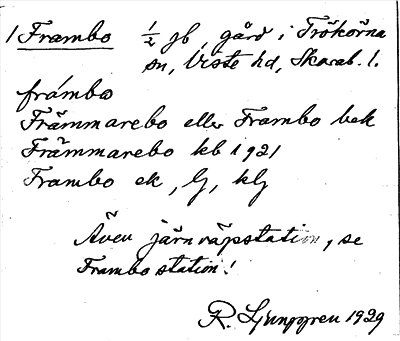 1 Frambo ½ jb, gård i Trökörna
sn, Viste hd, Skarab. l.
främbω
Främmarebo eller Frambo bek
Främmarebo kb 1921
Frambo ek, Lj, klj
Även järnvägsstation, se
Frambo station!
R. Ljunggren 1929